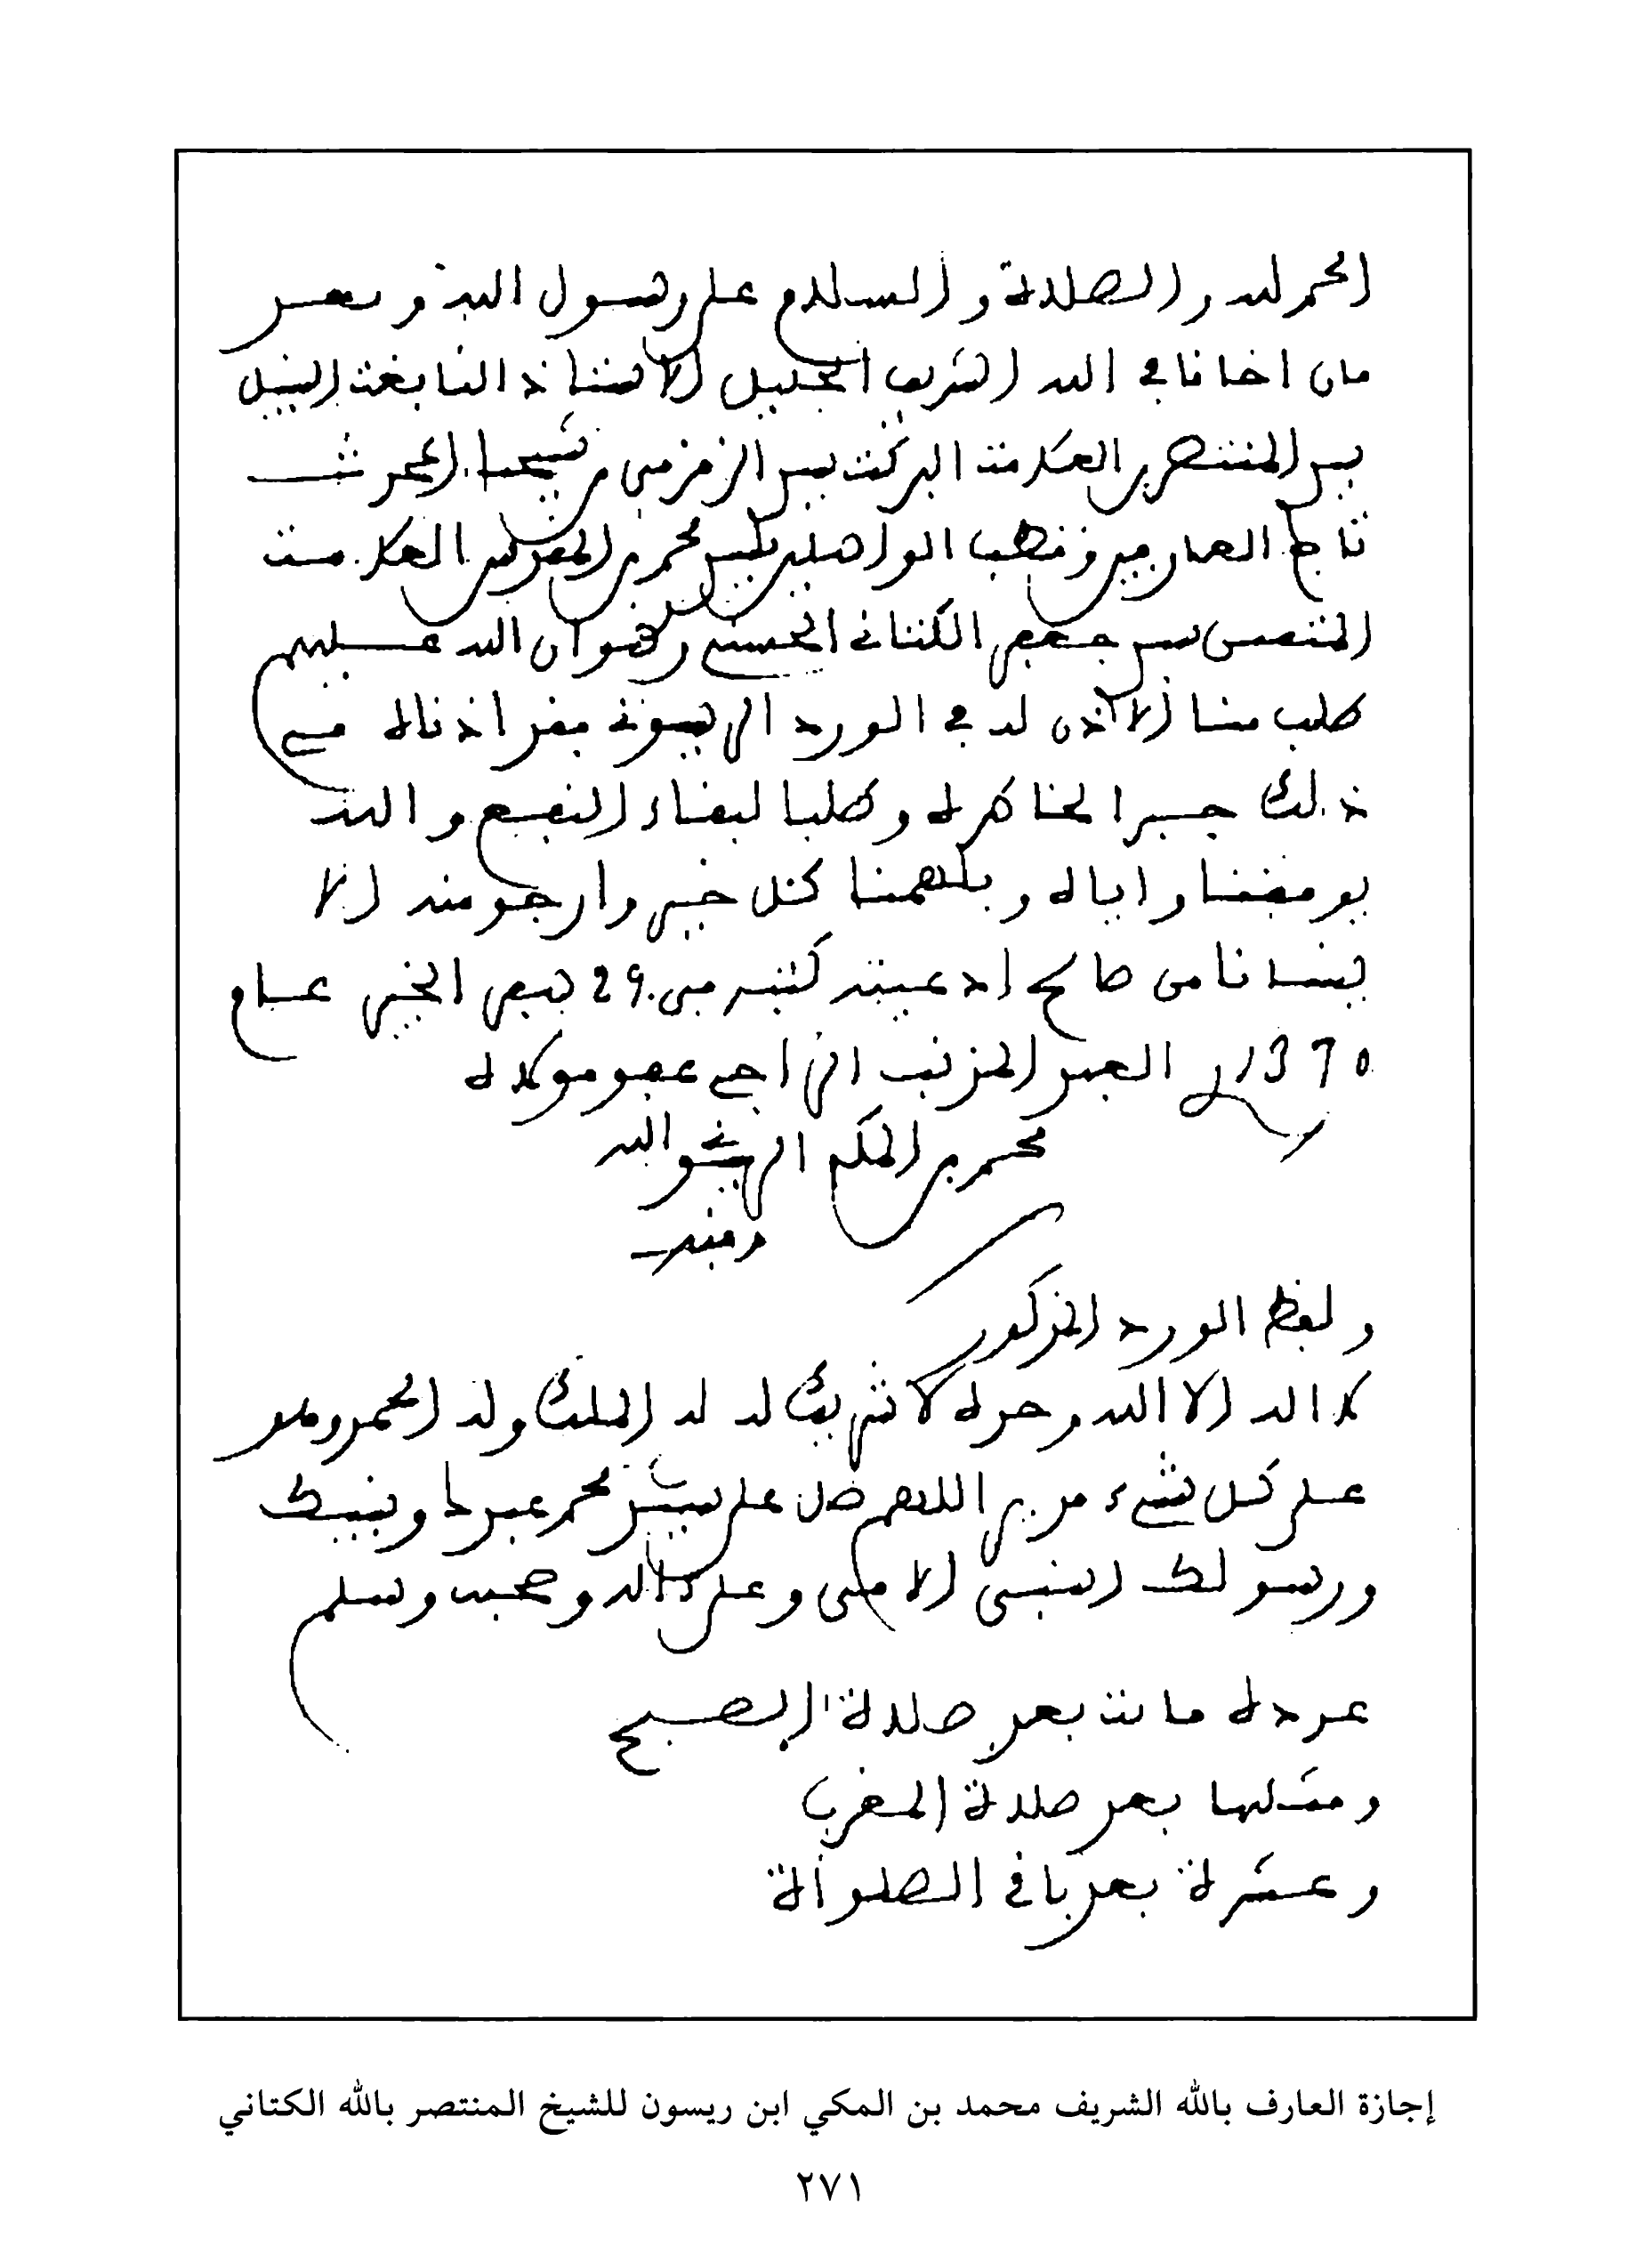 الحمد لله والصلاة والسلام على رسول الله وبعد
فان اخانا في الله الشريف الجليل الاستاذ النابغة النبيل
سيد المنتصر بن العلامة البركة سيد الزمزمي بن شيخنا المحدث
تاج العارفين وقطب الواصلين سيد محمد بن جعفر العلامة
سيد جعفر الكتاني الحسني رضوان الله عليهم
طلب منا الاذن له في الورد الريسوني فقد اذناه في
ذلك جبرا لخاطره وطلبا لبقاء النفع والله
يوفقنا واياه ويلهمنا كل خير وارجو منه الا
ينسانا من صالح ادعيته كتبه في 29 ربيع الخير عام
1370 العبد المذنب الراجي عفو مولاه
محمد بن المكي الريسوني الله
ولفظ الورد المذكور
لا اله الا الله وحده لا شريك له له الملك وله الحمد وهو
على كل شيء قدير اللهم صل على سيدنا محمد عبدك ونبيك
ورسولك النبي الامي وعلى اله وصحبه وسلم
عدده مائة بعد صلاة الصبح
ومثلها بعد صلاة المغرب
وعشرة بعد باقي الصلوات
إجازة العارف بالله الشريف محمد بن المكي ابن ريسون للشيخ المنتصر بالله الكتاني
٢٧١